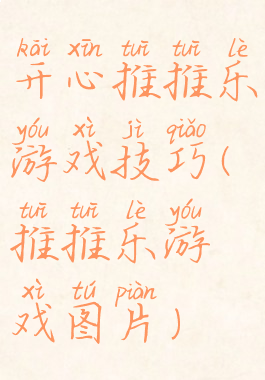 kāi xīn tuī tuī lè
开心推推乐
yóu xì jì qiǎo
游戏技巧(
tuī tuī lè yóu
推推乐游
xì tú piàn
戏图片)